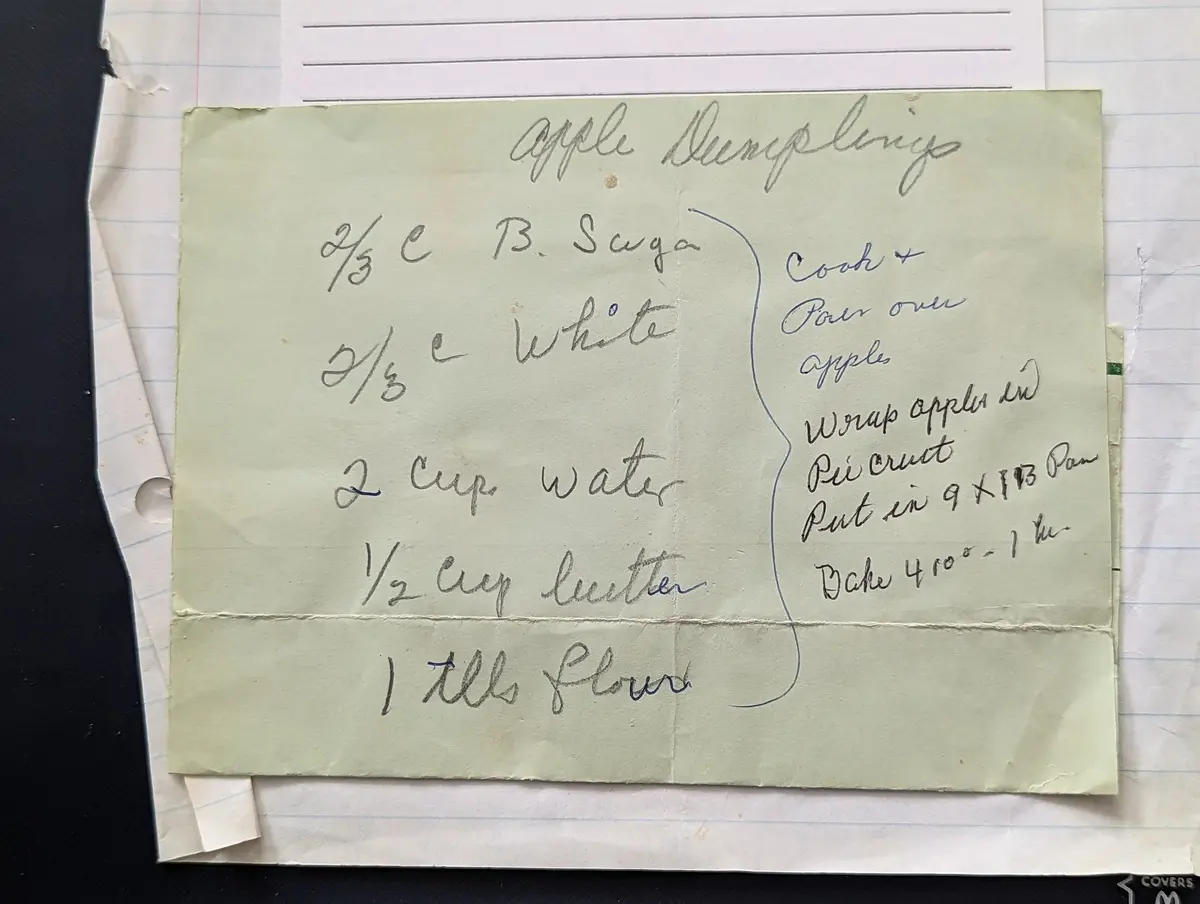 Apple Dumplings
2/3 C B. Suga
2/3 C White
2 Cup Water
1/2 Cup butter
1 tbls flour
Cook +
Pour over
apples
Wrap apples in
Pie Crust
Put in 9 X 13 Pan
Bake 410° - 1 hr.
COVERS